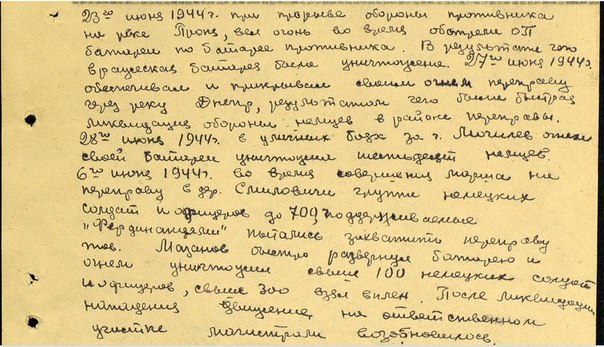 23го июня 1944г. при прорыве обороны противника
на реке Проня, вел огонь во время обстрела ОП
батареи по батарее противника. В результате чего
вражеская батарея была уничтожена. 27го июня 1944г.
обеспечивал и прикрывал своим огнем переправу
через реку Днепр, результатом чего была быстрая
ликвидация обороны немцев в районе переправы.
28го июня 1944г. в уличных боях за г. Могилев огнем
своей батареи уничтожил шестьдесят немцев.
6го июня 1944г. во время совершения марша на
переправу в дер. Смиловичи группа немецких
солдат и офицеров до 700, поддерживаемые
"Фердинандами" пытались захватить переправу
тов. Мазанов быстро развернул батарею и
огнем уничтожил свыше 100 немецких солдат
и офицеров, свыше 300 взял в плен. После ликвидации
нападения движение на ответственном
участке магистрали возобновилось.